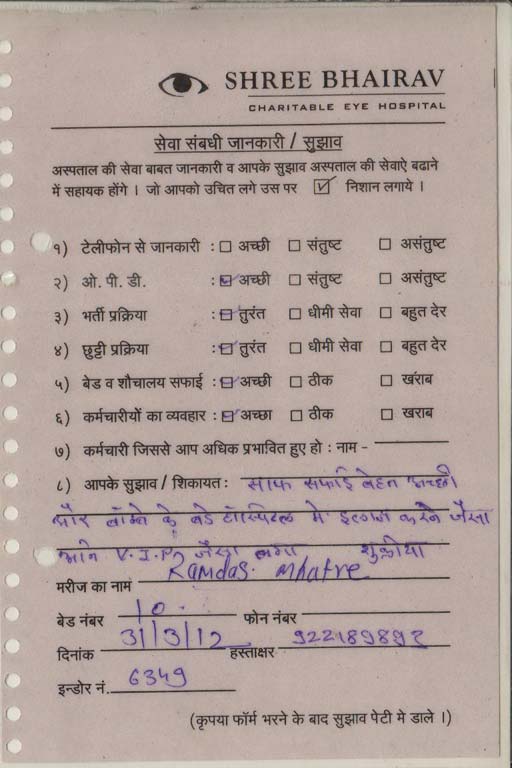 SHREE BHAIRAV
CHARITABLE EYE HOSPITAL
सेवा संबधी जानकारी / सुझाव
अस्पताल की सेवा बाबत जानकारी व आपके सुझाव अस्पताल की सेवाऐ बढाने
में सहायक होंगे । जो आपको उचित लगे उस पर ☑ निशान लगाये ।
१) टेलीफोन से जानकारी : ☐ अच्छी ☐ संतुष्ट ☐ असंतुष्ट
२) ओ. पी. डी. : ☑ अच्छी ☐ संतुष्ट ☐ असंतुष्ट
३) भर्ती प्रक्रिया : ☑ तुरंत ☐ धीमी सेवा ☐ बहुत देर
४) छुट्टी प्रक्रिया : ☑ तुरंत ☐ धीमी सेवा ☐ बहुत देर
५) बेड व शौचालय सफाई : ☑ अच्छी ☐ ठीक ☐ खराब
६) कर्मचारीयों का व्यवहार : ☑ अच्छा ☐ ठीक ☐ खराब
७) कर्मचारी जिससे आप अधिक प्रभावित हुए हो : नाम -
८) आपके सुझाव / शिकायत : साफ सफाई बेहत अच्छी
और बॉम्बे के बडे हॉस्पिटल मे इलाज करने जैसा
V.I.P जैसा लगा शुक्रीया
मरीज का नाम Ramdas. Mhatre
बेड नंबर 10. फोन नंबर
दिनांक 31/3/12 हस्ताक्षर
इन्डोर नं. 6349
(कृपया फॉर्म भरने के बाद सुझाव पेटी मे डाले ।)